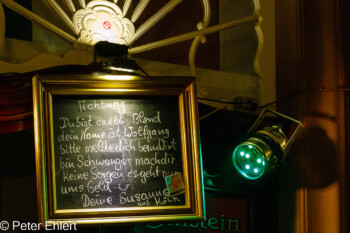 Achtung
Du bist ca 186 Blond
dein Name ist Wolfgang
bitte melde dich beim Wirt
bin Schwanger mach dir
keine Sorgen es geht nur
ums Geld
Deine Susanne
aus Köln
© Peter Ehlert